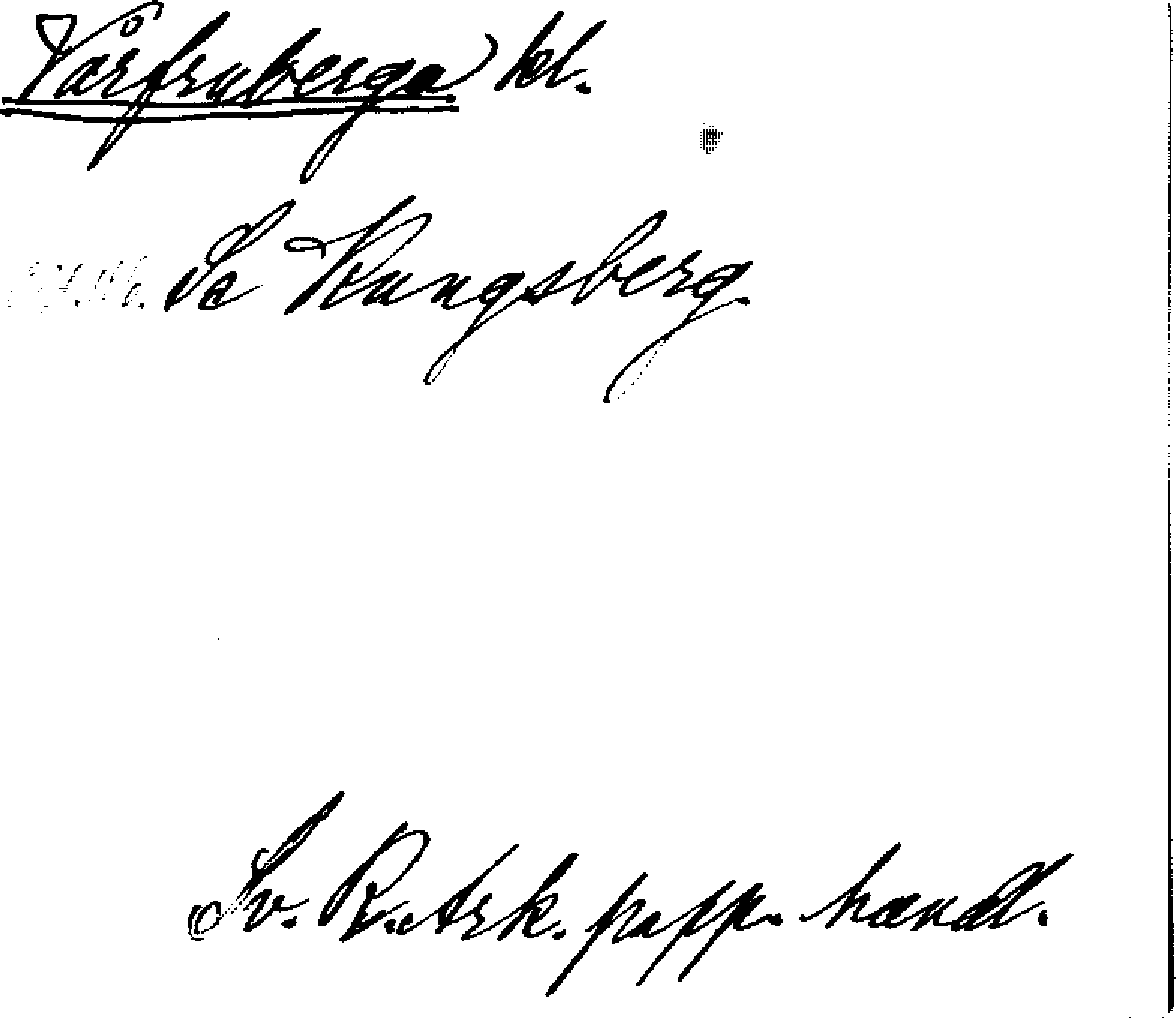 Vårfruberga kl.
Se Kungsberg
Sv. R. Ark. papp. handl.